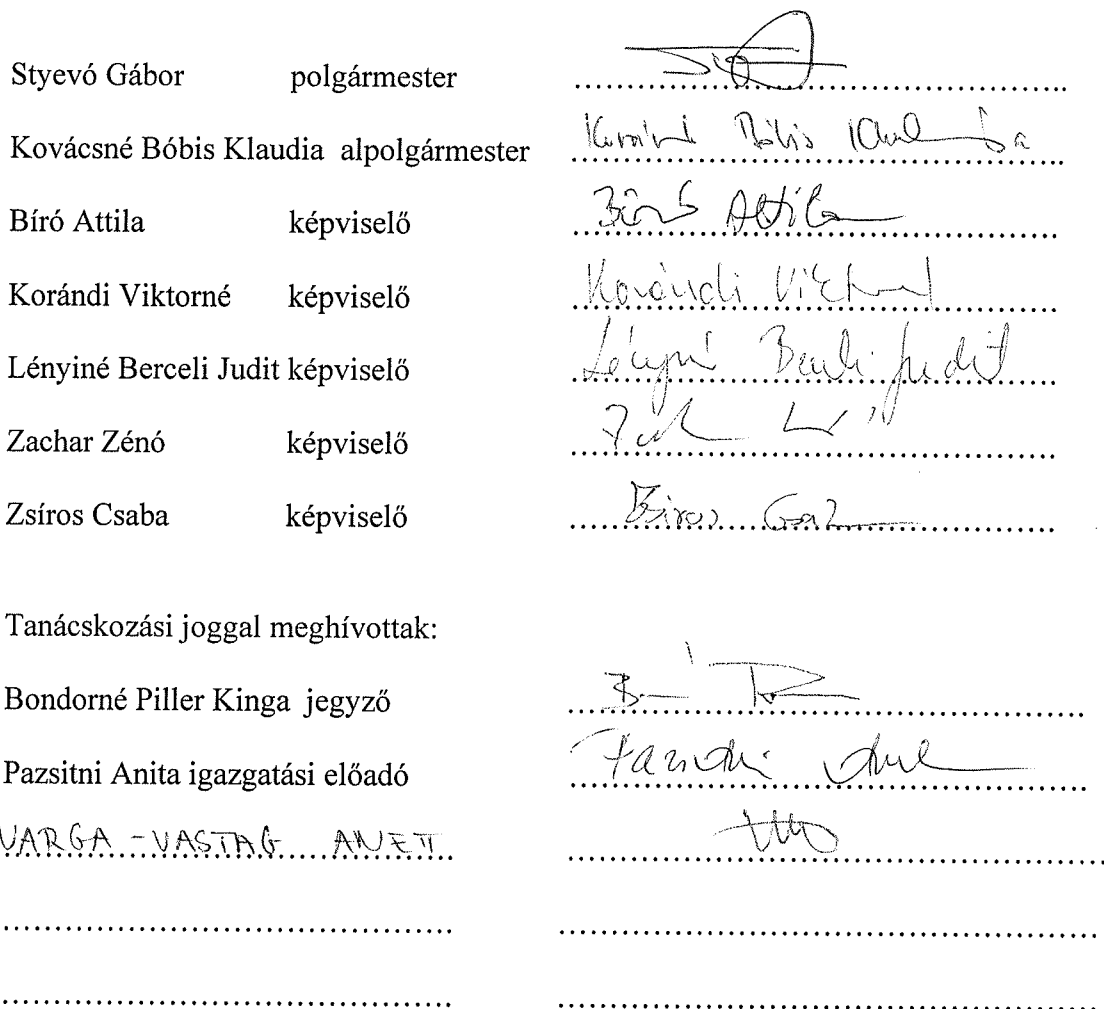 Styevó Gábor polgármester
Kovácsné Bóbis Klaudia alpolgármester
Bíró Attila képviselő Bíró Attila
Korándi Viktorné képviselő Korándi
Lényiné Berceli Judit képviselő Judit
Zachar Zénó képviselő
Zsíros Csaba képviselő Zsíros
Tanácskozási joggal meghívottak:
Bondorné Piller Kinga jegyző
Pazsitni Anita igazgatási előadó
VARGA-VASTAG ANETT